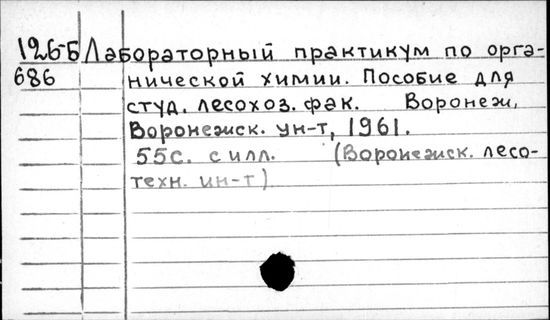 126-Б Лабораторный практикум по орга-
686 нической химии. Пособие для
студ. лесохоз. фак. Воронеж,
Воронежск. ун-т, 1961.
55с. с илл. (Воронежск. лесо-
техн. ин-т)